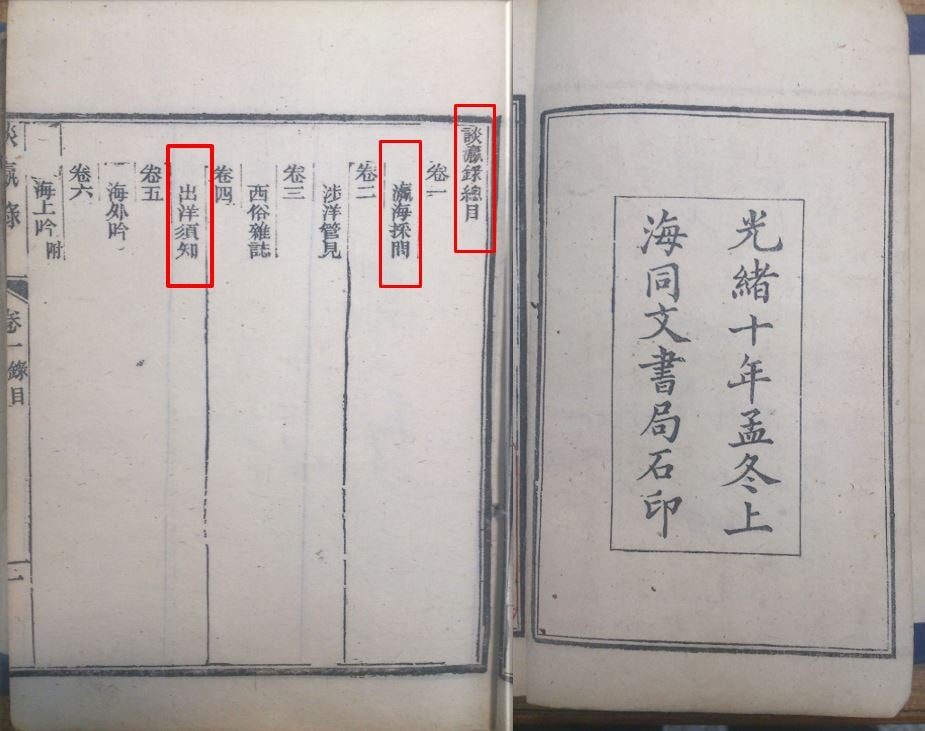 光緒十年孟冬上
海同文書局石印
談瀛錄總目
卷一
瀛海採問
卷二
涉洋管見
卷三
西俗雜誌
卷四
出洋須知
卷五
海外吟
卷六
海上吟附
談瀛錄
卷一